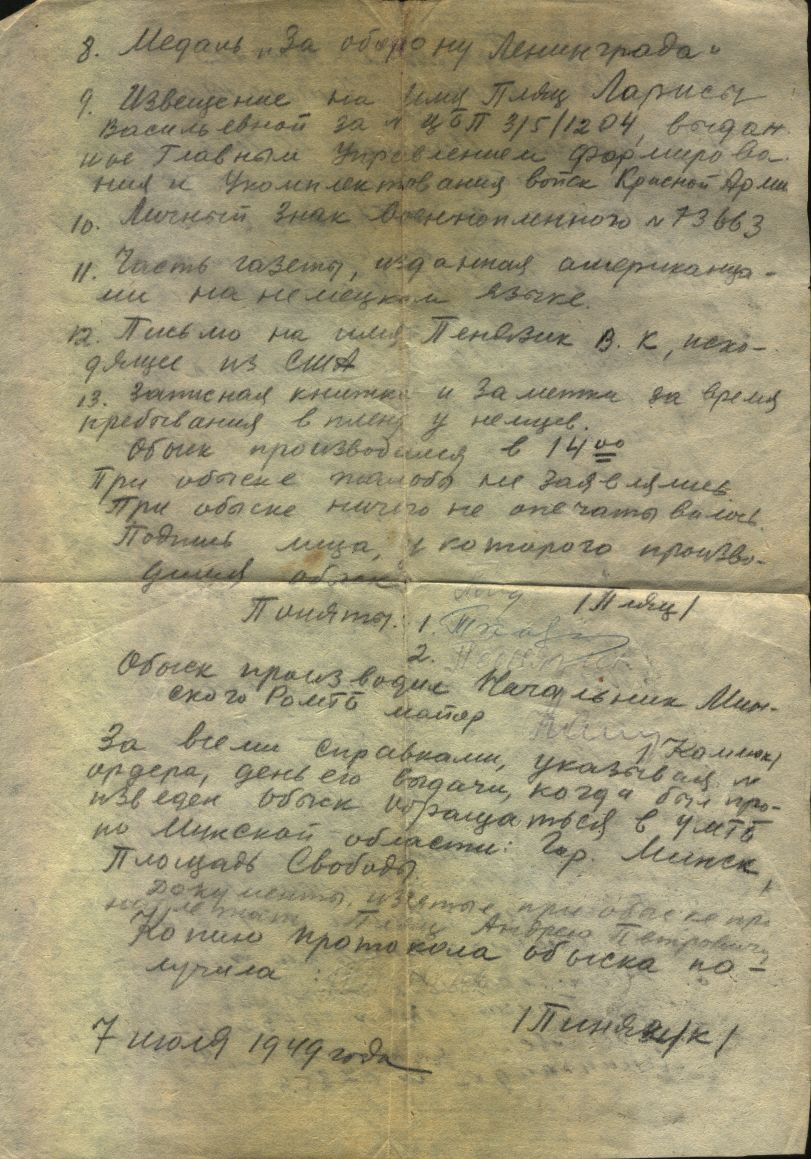 8. Медаль „За оборону Ленинграда“
9. Извещение на имя Пляц Ларисы
Васильевной за № ЦБП 3/5/1204, выдан
ное Главным Управлением формирова-
ния и Укомплектования войск Красной Арми
10. Личный знак Военнопленного № 73663
11. Часть газеты, изданная американца-
ми на немецком языке.
12. Письмо на имя В. К, исхо-
дящее из США
13. Записная книжка и Заметки за время
пребывания в плену у немцев.
Обыск производился в 14 00
При обыске жалобы не заявлялись.
При обыске ничего не опечатывалось.
Подпись лица, у которого произво-
дился обыск
/Пляц/
Поняты: 1.
2.
Обыск производил Начальник Мин-
ского РОМГБ майор
За всеми справками, указывая №
ордера, день его выдачи, когда был про-
изведен обыск обращаться в УМГБ
по Минской области: Гор. Минск,
Площадь Свободы
Документы, изятые при обыске при
надлежат Пляц Андрею Петровичу
Копию протокола обыска по-
лучила
/Пинячук/
7 июля 1949 года